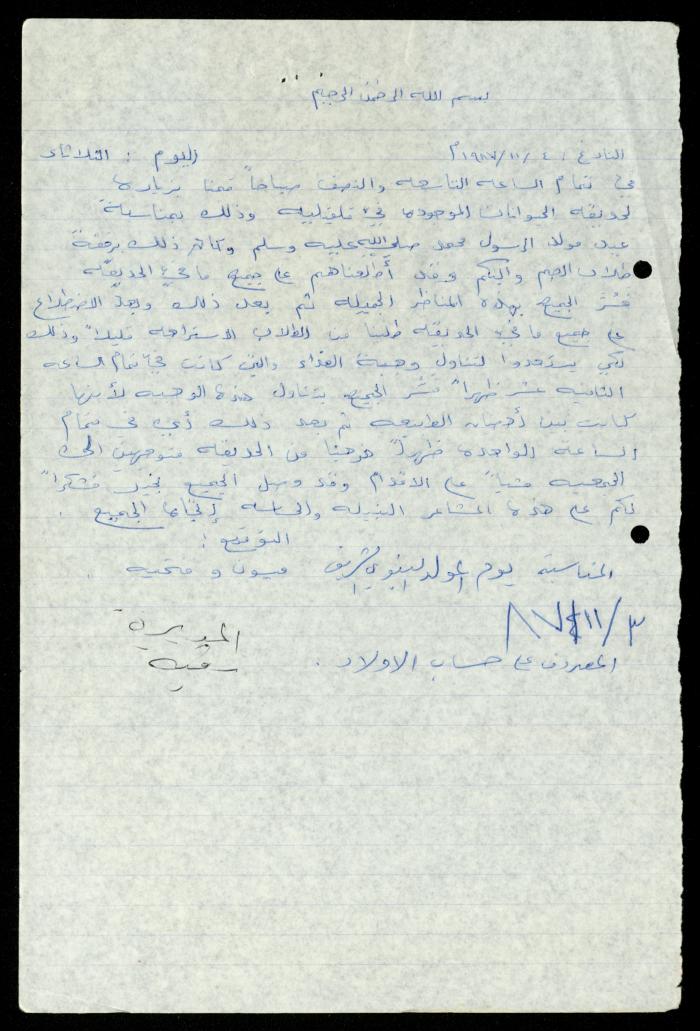 بسم الله الرحمن الرحيم
التاريخ : ٤ /١١/ ١٩٨٧م اليوم : الثلاثاء
في تمام الساعه التاسعه والنصف صباحاً قمنا بزياره
لحديقه الحيوانات الموجوده في قلقيليه وذلك بمناسبة
عيد مولد الرسول محمد صلى الله عليه وسلم وكان ذلك برفقة
طلاب الصم والبكم وقد أطلعناهم على جميع ما في الحديقة
فسُرّ الجميع بهذه المناظر الجميله ثم بعد ذلك وبعد الاضطلاع
على جميع ما في الحديقه طلبنا من الطلاب الاستراحه قليلاً وذلك
لكي يستعدوا لتناول وجبة الغذاء والتي كانت في تمام الساعه
الثانيه عشر ظهراً فسُر الجميع بتناول هذه الوجبه لأنها
كانت بين أحضان الطبيعه ثم بعد ذلك أي في تمام
الساعه الواحده ظهراً خرجنا من الحديقه متوجهين الى
الجمعيه مشياً على الاقدام وقد وصل الجميع بخير فشكراً
لكم على هذه المشاعر النبيله والحساسه إتجاه الجميع .
التوقيع :
المناسبة يوم المولد النبوي الشريف ميسون و فتحيه .
٨٧/١١/٣
المصروف على حساب الاولاد . المديرة
رقيه